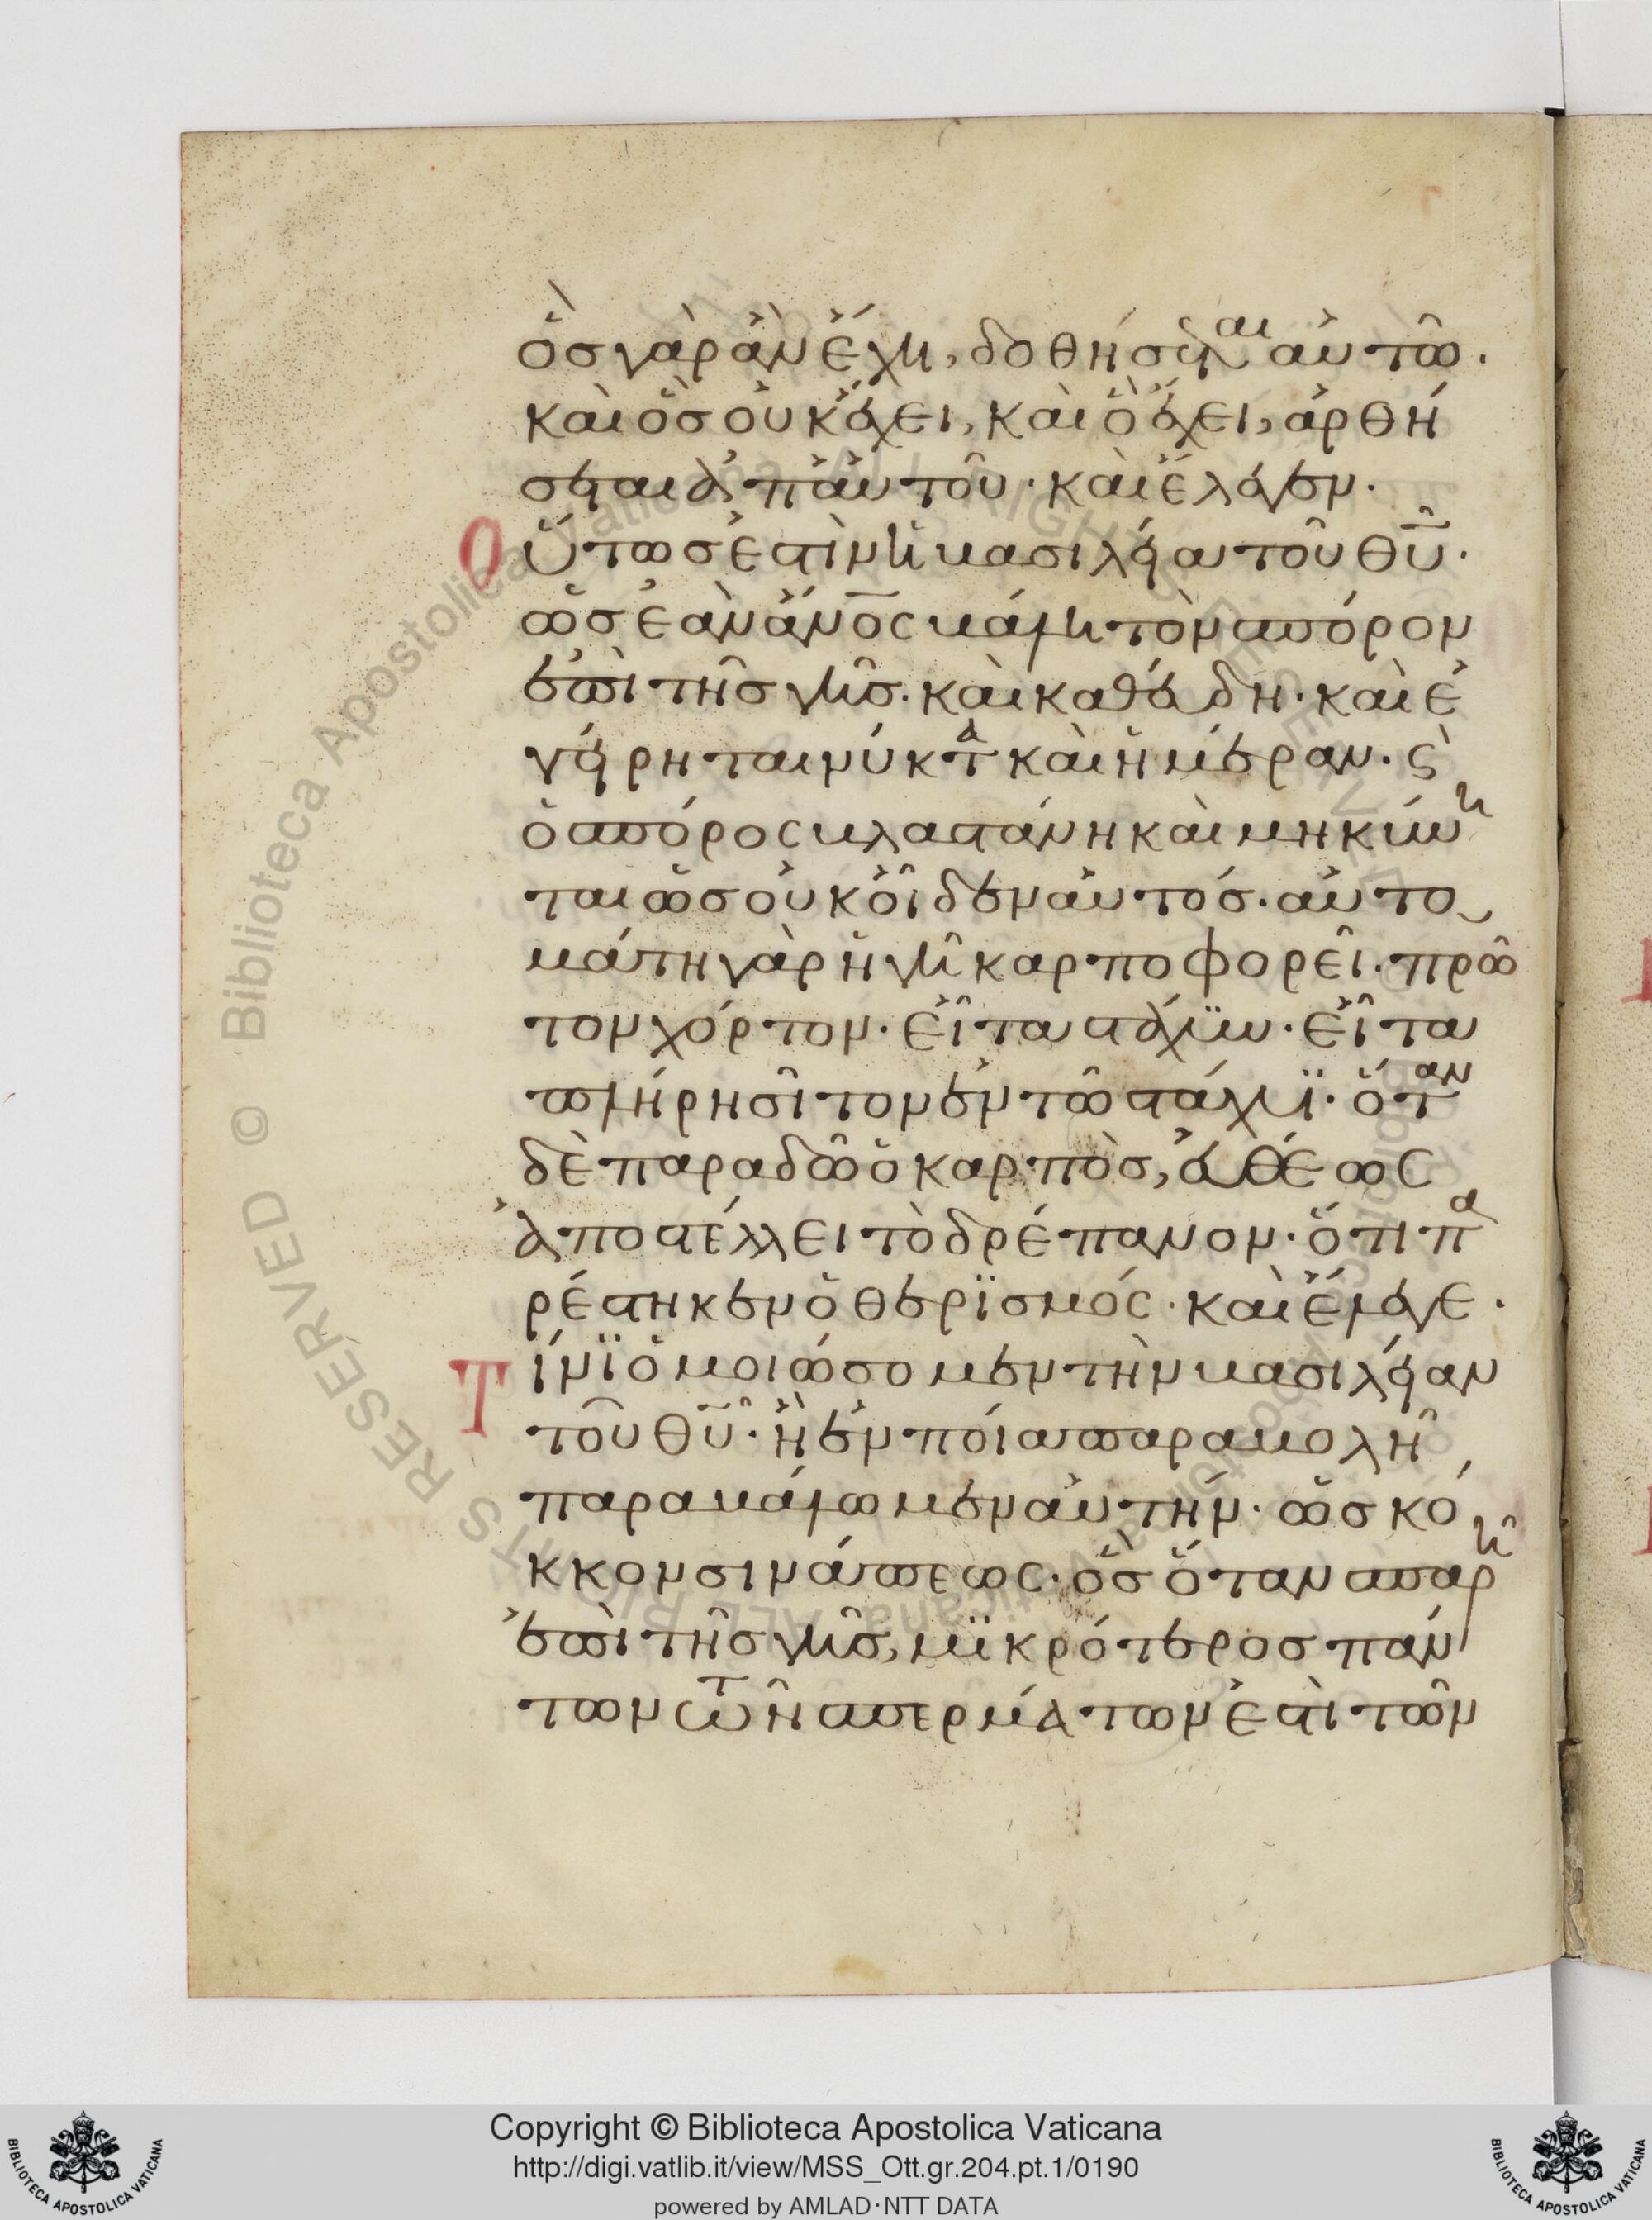 ὃσ γὰρ ἂν ἔχη, δοθήσεται αὐτῶ.
καὶ ὃσ οὐκ ἔχει, καὶ ὃ ἔχει, ἀρθή
σεται ἀπ ἀυτοῦ · καὶ ἔλεγεν ·
Οὕτωσ ἐστὶν ἡ βασιλεία τοῦ θῦ ·
ὡσ ἐὰν ἄνος βάλη τὸν σπόρον
ἐπὶ τῆσ γῆσ · καὶ καθεύδη · καὶ ἐ
γείρηται νύκτα καὶ ἡμέραν · ϛ̀
ὁ σπόρος βλαστάνη καὶ μηκύνη
ται ὡσ οὐκ οἶδεν αὐτόσ · αὐτο
μάτη γὰρ ἡ γῆ καρποφορεῖ · πρῶ
τον χόρτον · εἶτα στάχϋν · εἶτα
πλήρη σῖτον ἐν τῶ στάχυϊ · ὅταν
δὲ παραδῶ ὁ καρπὸσ, εὐθέως
ἀποστέλλει τὸ δρέπανον · ὅτι πα
ρέστηκεν ὁ θερϊσμός · καὶ ἔλεγε ·
Τίνϊ ὁμοιώσομεν τὴν βασιλείαν
τοῦ θῦ · ἢ ἐν ποία παραβολῆ
παραβάλωμεν αὐτήν · ὡσ κό
κκον σινάπεως · ὃσ ὅταν σπαρῆ
ἐπὶ τῆσ γῆσ, μϊκρότεροσ πάν
των τῶν σπερμάτων ἐστὶ τῶν
Copyright © Biblioteca Apostolica Vaticana
http://digi.vatlib.it/view/MSS_Ott.gr.204.pt.1/0190
powered by AMLAD·NTT DATA
BIBLIOTECA APOSTOLICA VATICANA
BIBLIOTECA APOSTOLICA VATICANA
© Biblioteca Apostolica Vaticana ALL RIGHTS RESERVED